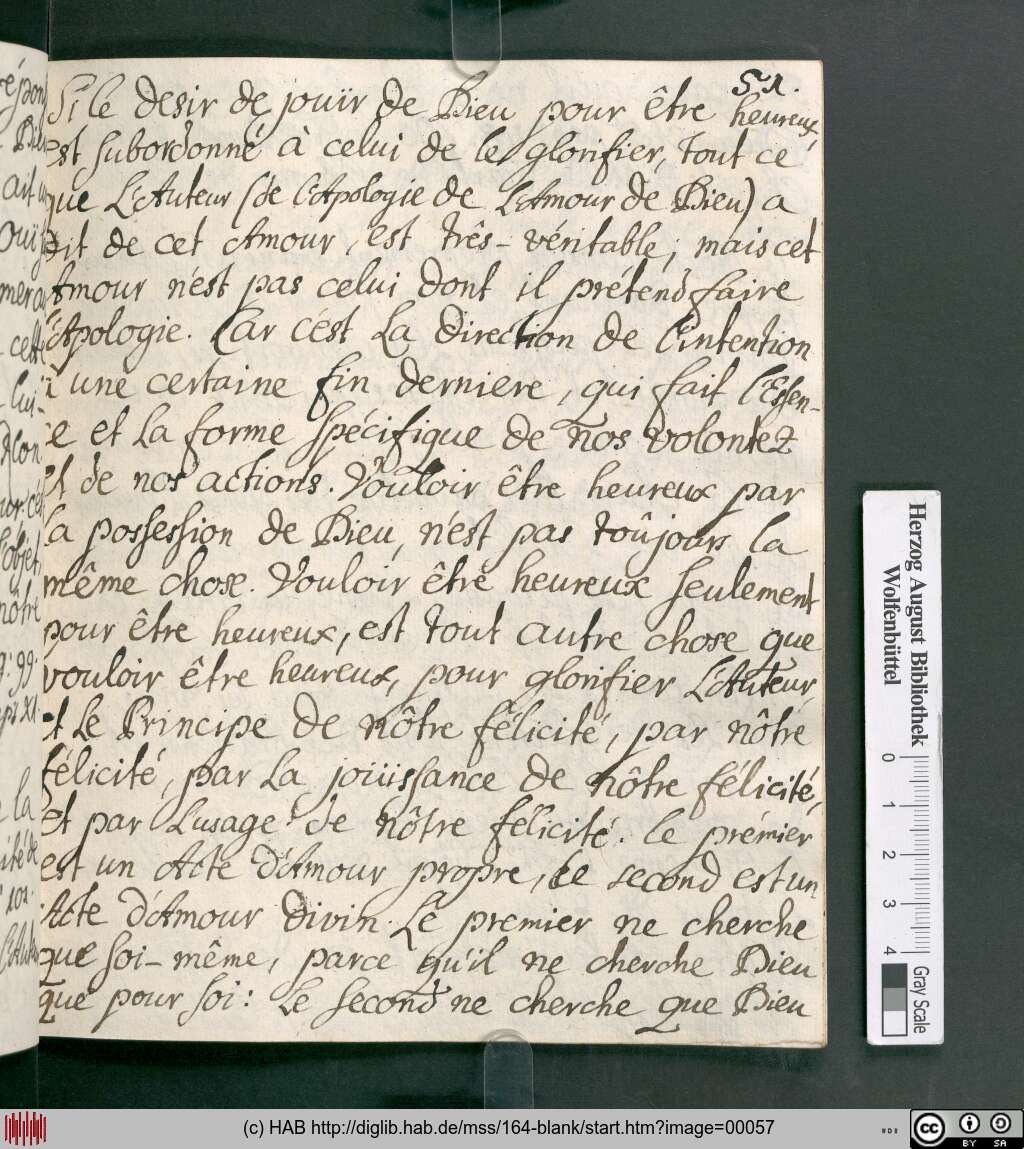 51.
Si le desir de jouïr de Dieu pour être heureux,
est subordonné à celui de le glorifier, tout ce
que L'Auteur (de l'Apologie de L'Amour de Dieu) a
dit de cet Amour, est três-véritable; mais cet
Amour n'est pas celui dont il prétend faire
L'Apologie. Car c'est La direction de l'intention
à une certaine fin derniere, qui fait l'Essen-
ce et La forme spécifique de nos volontez
et de nos actions. Vouloir être heureux par
la possession de Dieu, n'est pas toûjours la
même chose. Vouloir être heureux seulement
pour être heureux, est tout autre chose que
vouloir être heureux, pour glorifier L'Auteur
et Le Principe de nôtre félicité, par nôtre
félicité, par La joüissance de nôtre félicité,
Et par L'usage de nôtre félicité. le prémier
est un Acte d'Amour propre, Le second est un
Acte d'Amour divin. Le premier ne cherche
que soi-même, parce qu'il ne cherche Dieu
que pour soi: Le second ne cherche que Dieu
Herzog August Bibliothek
Wolfenbüttel
0 1 2 3 4
Gray Scale
(c) HAB http://diglib.hab.de/mss/164-blank/start.htm?image=00057
cc BY SA